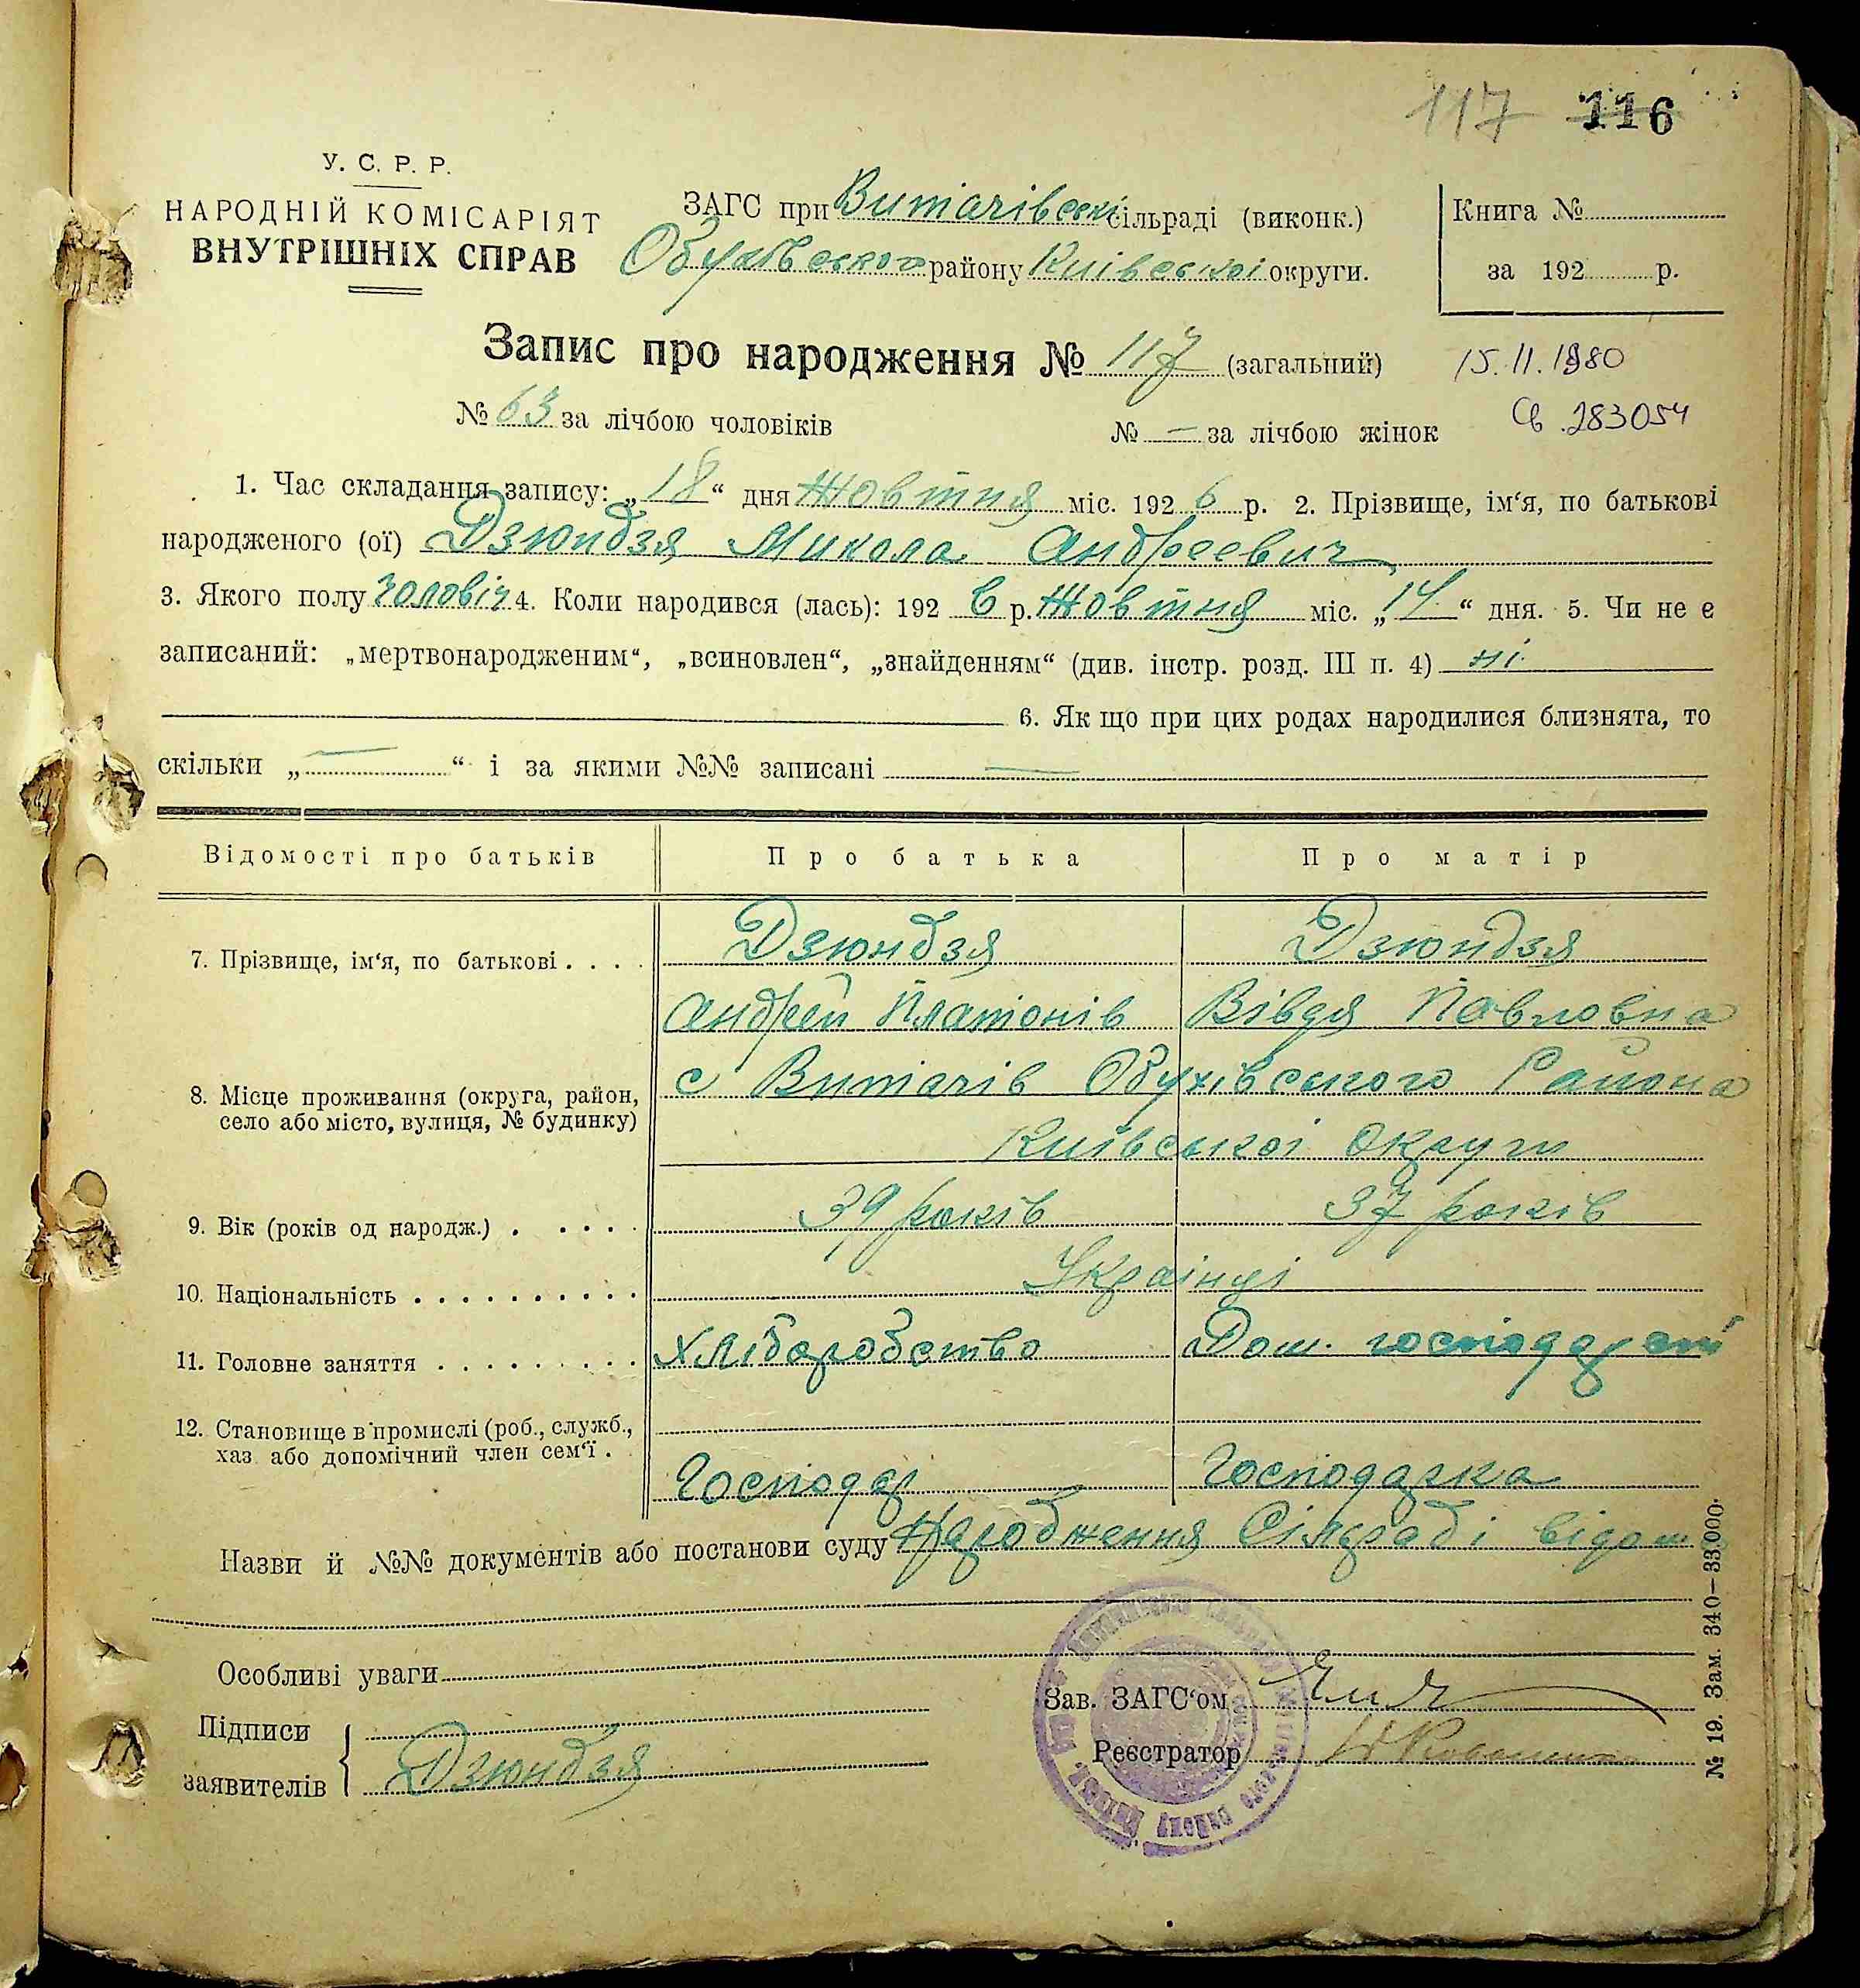 117 116
У. С. Р. Р.
НАРОДНІЙ КОМІСАРІЯТ
ВНУТРІШНІХ СПРАВ
ЗАГС при Витачівські сільраді (виконк.)
Обухівського району Київської округи.
Книга №
за 192 р.
Запис про народження № 117 (загальний)
15.11.1980
№ 63 за лічбою чоловіків № — за лічбою жінок
Св. 283054
1. Час складання запису: „18“ дня Жовтня міс. 1926 р. 2. Прізвище, ім‘я, по батькові
народженого (ої) Дзюндзя Микола Андреевич
3. Якого полу чоловіч 4. Коли народився (лась): 1926 р. Жовтня міс. „14“ дня. 5. Чи не є
записаний: „мертвонародженим“, „всиновлен“, „знайденням“ (див. інстр. розд. III п. 4) ні
6. Як що при цих родах народилися близнята, то
скільки „—“ і за якими №№ записані —
Відомості про батьків Про батька Про матір
Дзюндзя Дзюндзя
7. Прізвище, ім‘я, по батькові . . . .
Андрей Платонів Вівдя Павловна
8. Місце проживання (округа, район, с Витачів Обухівського Района
село або місто, вулиця, № будинку)
Київської Округи
9. Вік (років од народж.) . . . . . 39 років 37 років
10. Національність . . . . . . . . . . Українці
11. Головне заняття . . . . . . . . . Хліборобство Дом. господарст
12. Становище в промислі (роб., служб.,
хаз або допомічний член сем‘ї . .
Господар Господарка
Назви й №№ документів або постанови суду Народження Сілраді відом
Особливі уваги
Підписи
заявителів
Дзюндзя
Зав. ЗАГС‘ом
Реєстратор
№ 19. Зам. 340—33.000.